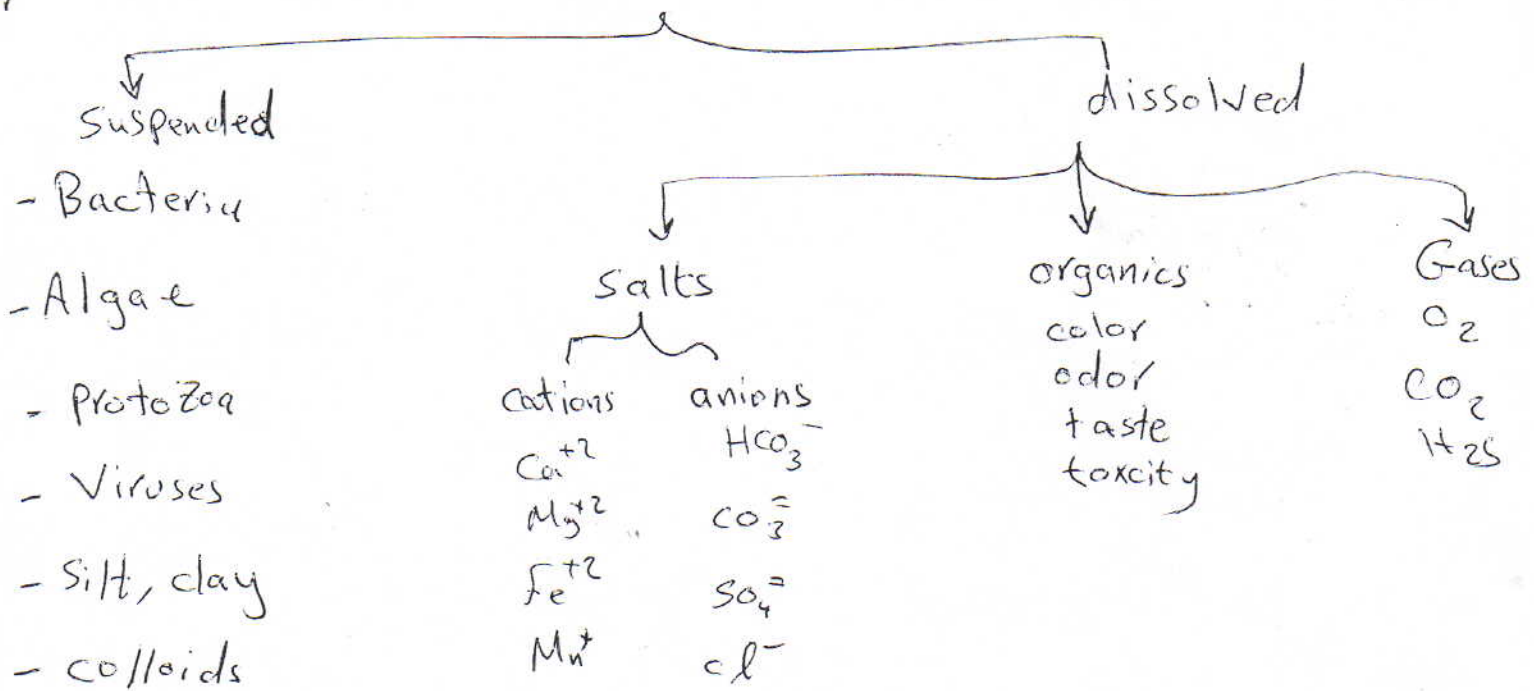 suspended
- Bacteria
- Algae
- Protozoa
- Viruses
- Silt, clay
- colloids
dissolved
Salts
cations
Ca+2
Mg+2
Fe+2
Mn+
anions
HCO3-
CO3=
SO4=
Cl-
organics
color
odor
taste
toxcity
Gases
O2
CO2
H2S